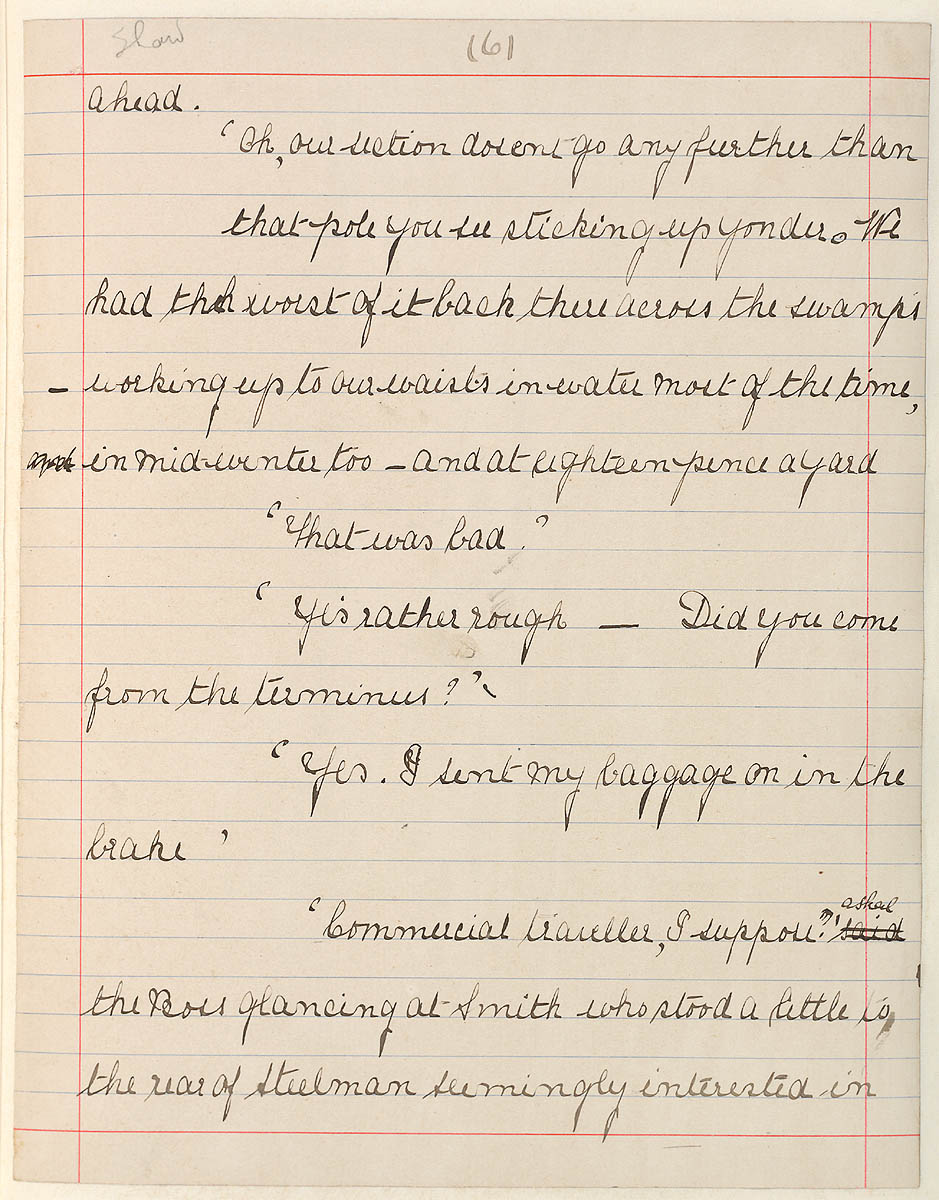 (6)
ahead.
'Oh, our section dosent go any further than
that pole you see sticking up yonder. We
had the worst of it back there across the swamps
– working up to our waists in water most of the time,
in mid-winter too – and at eighteen-pence a yard
'That was bad.'
'Yes rather rough — Did you come
from the terminus?'
'Yes. I sent my baggage on in the
brake'
asked
'Commercial traveller, I suppose?' said
the Boss glancing at Smith who stood a little to
the rear of Steelman seemingly interested in